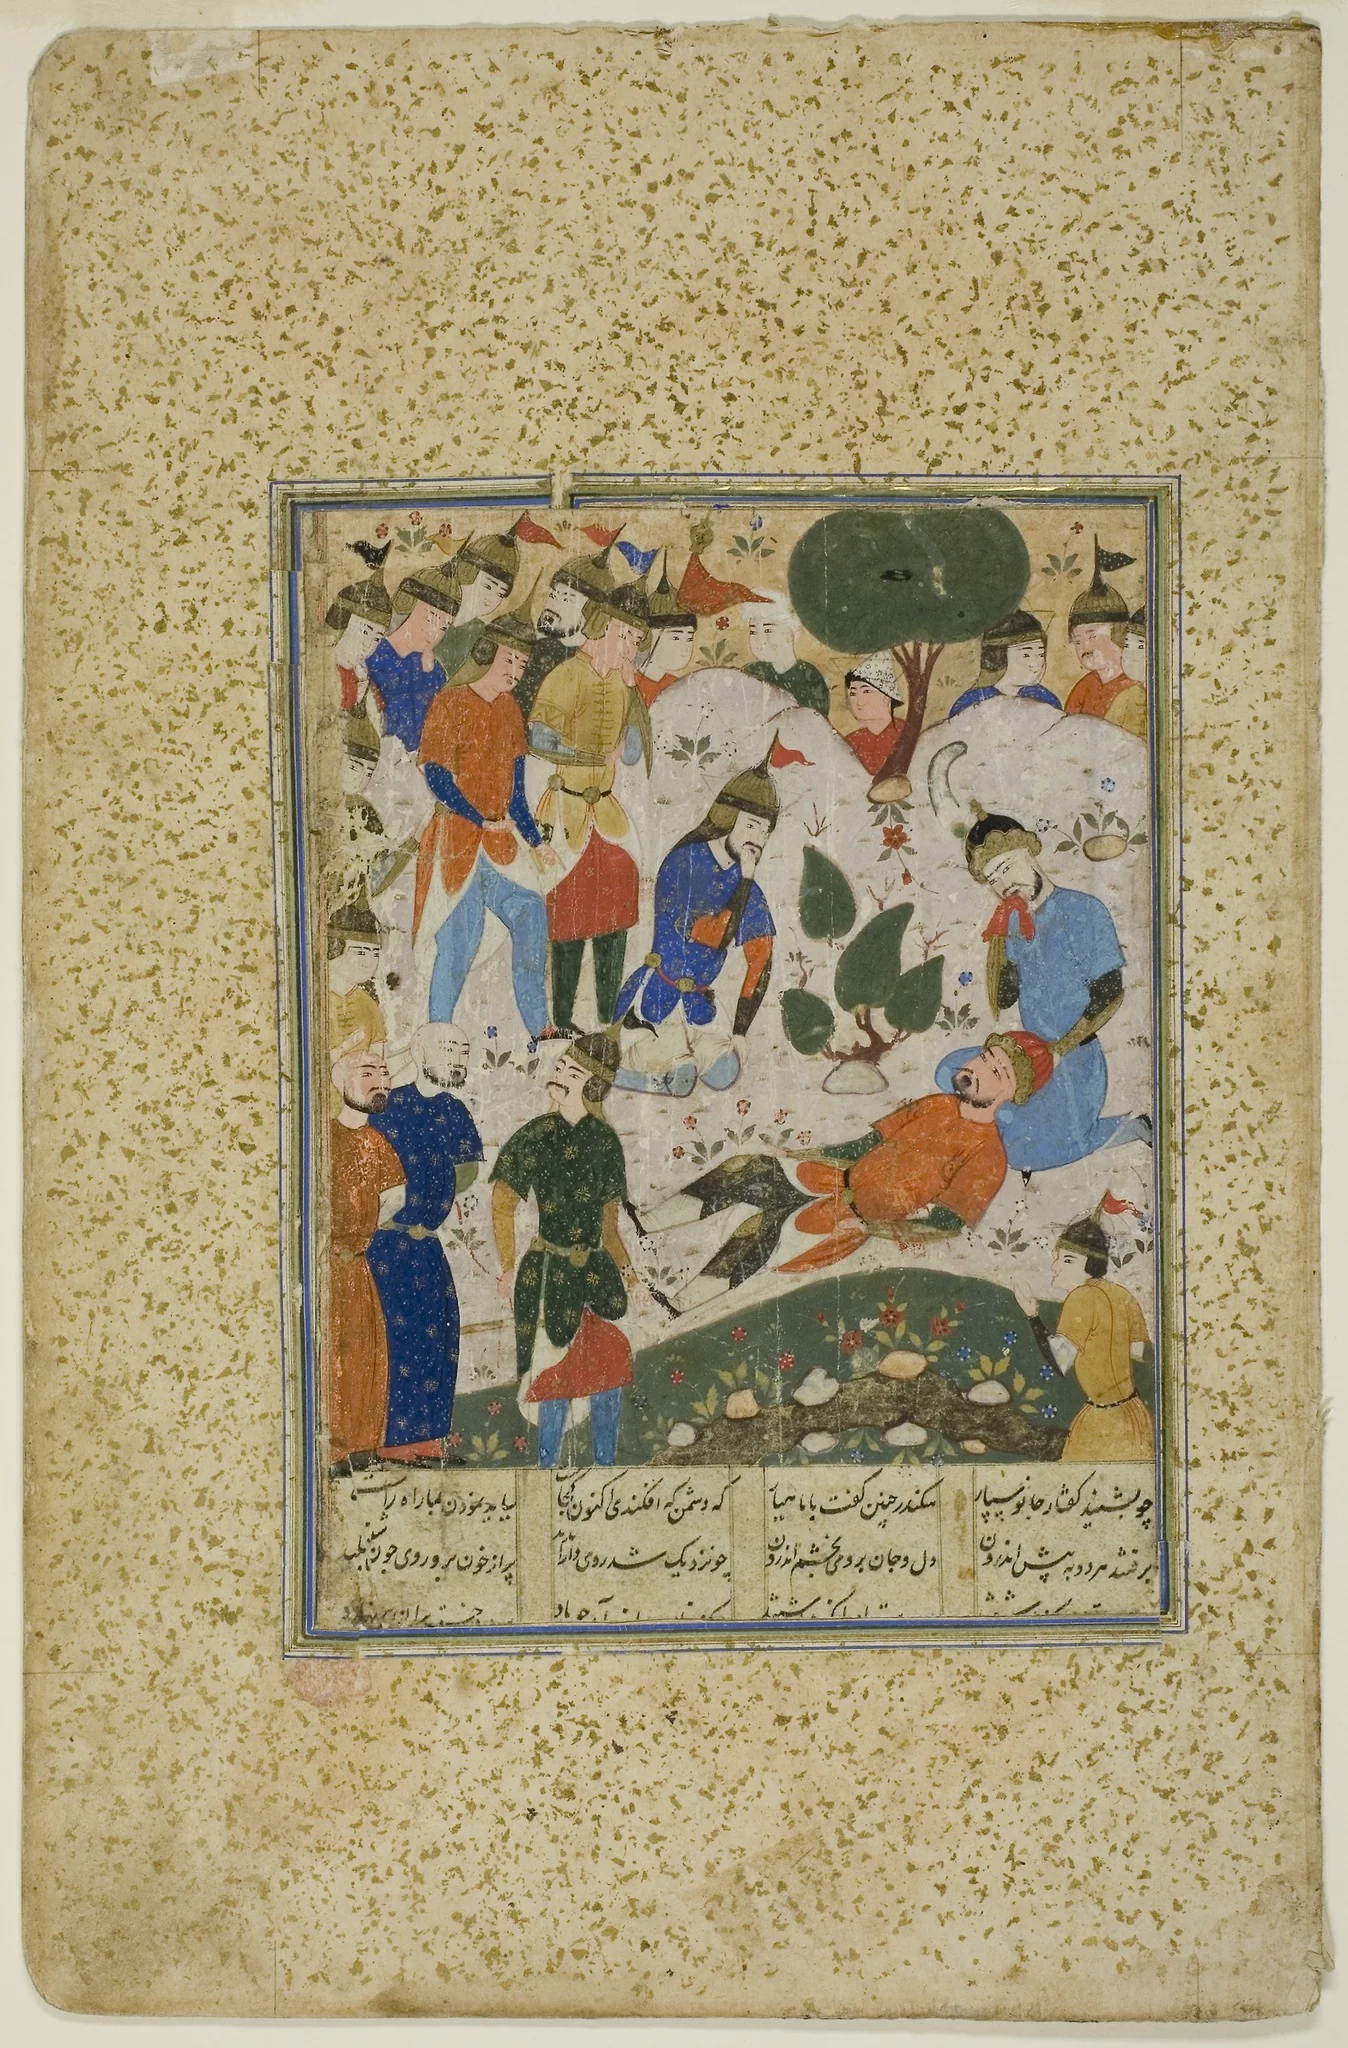 چو بشنید گفتار جانوسپار سکندر چنین گفت با ماهیار که دشمن که افکندی اکنون کجاست بباید نمودن بما راه راست
برفتند هر دو به پیش اندرون دل و جان برومی بخشم اندرون چو نزدیک شد روی دارا بدید پر از خون بر و روی چون شنبلید